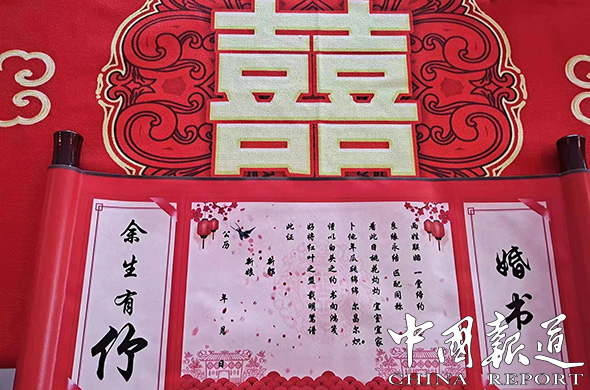 囍
婚书
两姓联姻 一堂缔约
良缘永结 匹配同称
看此日桃花灼灼 宜室宜家
卜他年瓜瓞绵绵 尔昌尔炽
谨以白头之约 书向鸿笺
好将红叶之盟 载明鸳谱
此证
新郎
新娘
公历 年 月 日
余生有你
中國報道
CHINA REPORT